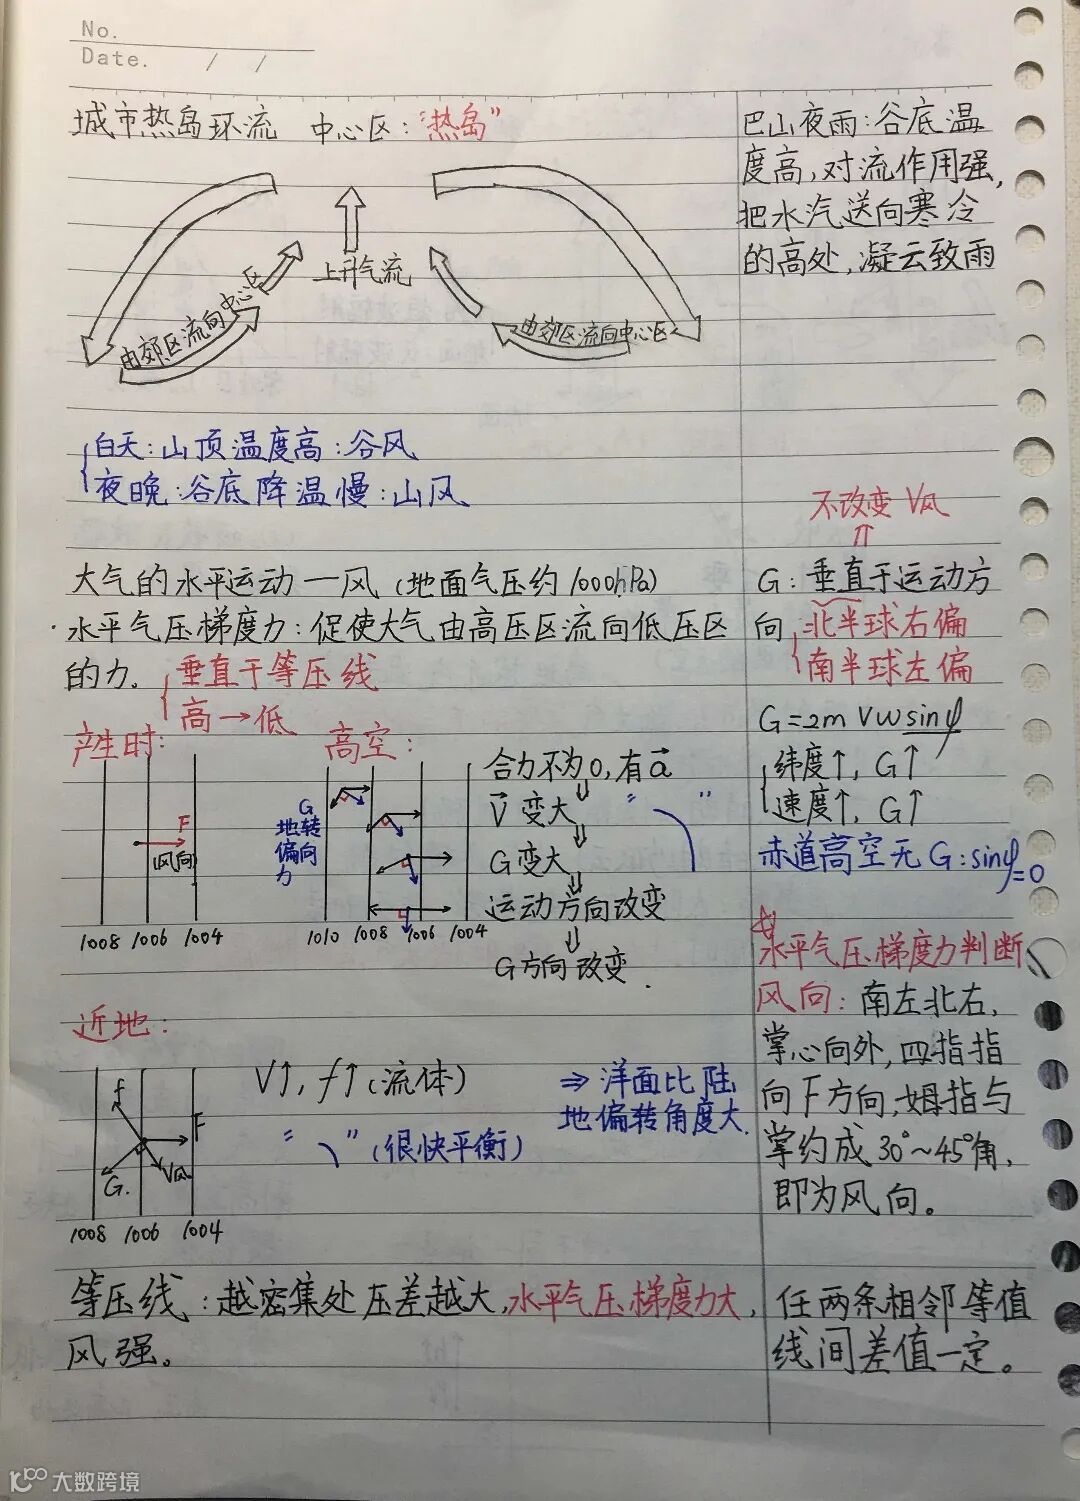 No.
Date. / /
城市热岛环流 中心区:"热岛"
上升气流
由郊区流向中心区
由郊区流向中心区
白天:山顶温度高:谷风
夜晚:谷底降温慢:山风
大气的水平运动—风(地面气压约1000hPa)
水平气压梯度力:促使大气由高压区流向低压区
的力。
垂直于等压线
高→低
产生时:
F
(风向)
1008 1006 1004
高空:
G
地转
偏向
力
1010 1008 1006 1004
合力不为0,有a⃗
⇓
V⃗ 变大 " "
⇓
G变大
⇓
运动方向改变
⇓
G方向改变.
近地:
f
F
G.
V风
1008 1006 1004
V↑, f↑(流体)
" "(很快平衡)
⇒洋面比陆
地偏转角度大.
等压线:越密集处压差越大,水平气压梯度力大,
风强。
巴山夜雨:谷底温
度高,对流作用强,
把水汽送向寒冷
的高处,凝云致雨
不改变V风
⇑
G:垂直于运动方
向
北半球右偏
南半球左偏
G=2mVwsinφ
纬度↑, G↑
速度↑, G↑
赤道高空无G:sinφ=0
☆
水平气压梯度力判断
风向:南左北右,
掌心向外,四指指
向F方向,姆指与
掌约成30°~45°角,
即为风向。
任两条相邻等值
线间差值一定。
大数跨境